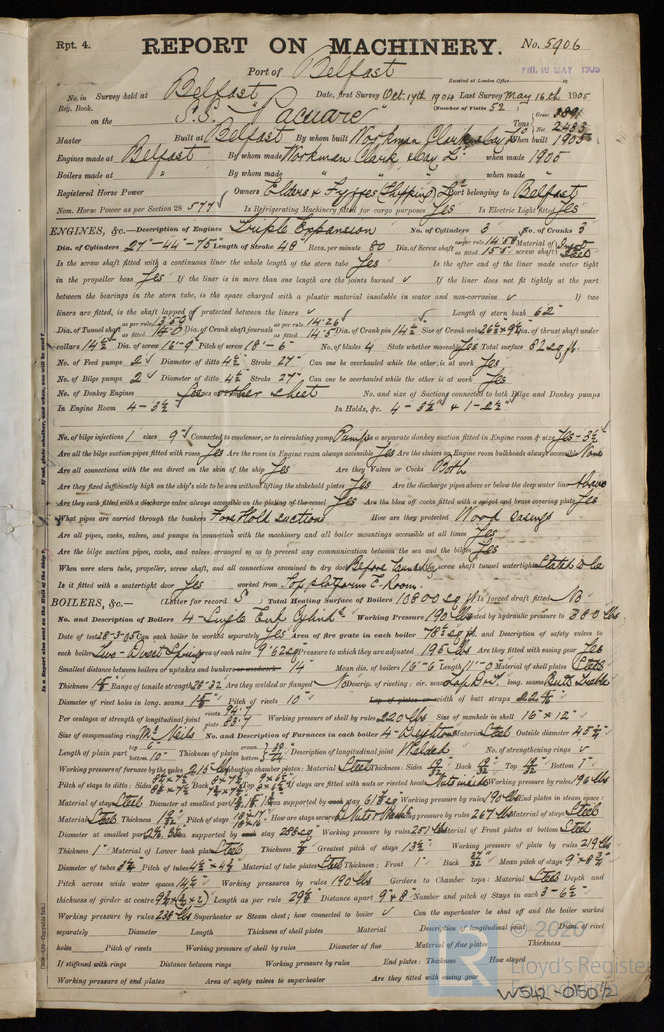 Rpt. 4.
REPORT ON MACHINERY.
No. 5906
Port of Belfast
Received at London Office
FRI. 19 MAY 1905
No. in Survey held at Belfast Date, first Survey Oct. 17th 1904 Last Survey May 16th 1905
Reg. Book.
(Number of Visits 52)
on the S.S. "Pacuare" Tons Gross 3891 Net 2483
Master Built at Belfast By whom built Workman Clark & Coy Ld When built 1905
Engines made at Belfast By whom made Workman Clark & Coy Ld when made 1905
Boilers made at " By whom made " when made "
Registered Horse Power Owners Elders & Fyffes (Shipping) Ld Port belonging to Belfast
Nom. Horse Power as per Section 28 577 Is Refrigerating Machinery fitted for cargo purposes Yes Is Electric Light fitted Yes
ENGINES, &c.—Description of Engines Triple Expansion No. of Cylinders 3 No. of Cranks 3
Dia. of Cylinders 27"-44"-75" Length of Stroke 48" Revs. per minute 80 Dia. of Screw shaft as per rule 14.58 as fitted 15.5 Material of screw shaft
Is the screw shaft fitted with a continuous liner the whole length of the stern tube Yes Is the after end of the liner made water tight
in the propeller boss Yes If the liner is in more than one length are the joints burned ✓ If the liner does not fit tightly at the part
between the bearings in the stern tube, is the space charged with a plastic material insoluble in water and non-corrosive ✓ If two
liners are fitted, is the shaft lapped or protected between the liners ✓ Length of stern bush 62"
Dia. of Tunnel shaft as per rule 13.59 as fitted 14.0 Dia. of Crank shaft journals as per rule 14.26 as fitted 14.5 Dia. of Crank pin 14½ Size of Crank webs 26½"×9½" Dia. of thrust shaft under
collars 14½ Dia. of screw 16'-9" Pitch of screw 18'-6" No. of blades 4 State whether moveable Yes Total surface 82 sq ft.
No. of Feed pumps 2 Diameter of ditto 4½" Stroke 27" Can one be overhauled while the other is at work Yes
No. of Bilge pumps 2 Diameter of ditto 4½" Stroke 27" Can one be overhauled while the other is at work Yes
No. of Donkey Engines See other sheet No. and size of Suctions connected to both Bilge and Donkey pumps
In Engine Room 4-3½" In Holds, &c. 4-3½" & 1-2½"
No. of bilge injections 1 sizes 9" Connected to condenser, or to circulating pump Pump Is a separate donkey suction fitted in Engine room & size Yes-3½
Are all the bilge suction pipes fitted with roses Yes Are the roses in Engine room always accessible Yes Are the sluices on Engine room bulkheads always accessible None
Are all connections with the sea direct on the skin of the ship Yes Are they Valves or Cocks Both
Are they fixed sufficiently high on the ship's side to be seen without lifting the stokehold plates Yes Are the discharge pipes above or below the deep water line Above
Are they each fitted with a discharge valve always accessible on the plating of the vessel Yes Are the blow off cocks fitted with a spigot and brass covering plate Yes
What pipes are carried through the bunkers Fore Hold suctions How are they protected Wood Casings
Are all pipes, cocks, valves, and pumps in connection with the machinery and all boiler mountings accessible at all times Yes
Are the bilge suction pipes, cocks, and valves arranged so as to prevent any communication between the sea and the bilges Yes
When were stern tube, propeller, screw shaft, and all connections examined in dry dock Before launch Is the screw shaft tunnel watertight Stated to be
Is it fitted with a watertight door Yes worked from Top platform E. Room.
BOILERS, &c.— (Letter for record S) Total Heating Surface of Boilers 10800 sq ft Is forced draft fitted No
No. and Description of Boilers 4-Single End Cylindl Working Pressure 190 lbs Tested by hydraulic pressure to 380 lbs
Date of test 28-3-05 Can each boiler be worked separately Yes Area of fire grate in each boiler sq ft. No. and Description of safety valves to
each boiler Two-Direct Spring Area of each valve 9.62 sq Pressure to which they are adjusted 195 lbs Are they fitted with easing gear Yes
Smallest distance between boilers or uptakes and bunkers or woodwork 14" Mean dia. of boilers 16'-6" Length 11'-0" Material of shell plates Steel
Thickness Range of tensile strength 28-32 Are they welded or flanged No Descrip. of riveting: cir. seams Lap long. seams Butt
Diameter of rivet holes in long. seams Pitch of rivets 10" Lap of plates or width of butt straps
Per centages of strength of longitudinal joint rivets 94.7 plate 83.7 Working pressure of shell by rules 220 lbs Size of manhole in shell 16" × 12"
Size of compensating ring McNeils No. and Description of Furnaces in each boiler 4-Deightons Material Steel Outside diameter 45½"
Length of plain part top 6" bottom 10" Thickness of plates crown bottom Description of longitudinal joint Welded No. of strengthening rings ✓
Working pressure of furnace by the rules 215 lbs Combustion chamber plates: Material Steel Thickness: Sides Back Top Bottom 1"
Pitch of stays to ditto: Sides Back Top If stays are fitted with nuts or riveted heads Nuts inside Working pressure by rules 190 lbs
Material of stays Steel Diameter at smallest part Area supported by each stay Working pressure by rules 190 lbs End plates in steam space:
Material Steel Thickness Pitch of stays How are stays secured Working pressure by rules 267 lbs Material of stays Steel
Diameter at smallest part Area supported by each stay 288 sq Working pressure by rules 251 lbs Material of Front plates at bottom Steel
Thickness 1" Material of Lower back plate Steel Thickness Greatest pitch of stays 13½" Working pressure of plate by rules 219 lbs
Diameter of tubes 3¼" Pitch of tubes 4½" × 4½" Material of tube plates Steel Thickness: Front 1" Back Mean pitch of stays
Pitch across wide water spaces 14½" Working pressures by rules 190 lbs Girders to Chamber tops: Material Steel Depth and
thickness of girder at centre Length as per rule 29½ Distance apart Number and pitch of Stays in each 3-6½"
Working pressure by rules 238 lbs Superheater or Steam chest; how connected to boiler ✓ Can the superheater be shut off and the boiler worked
separately Diameter Length Thickness of shell plates Material Description of longitudinal joint Diam. of rivet
holes Pitch of rivets Working pressure of shell by rules Diameter of flue Material of flue plates Thickness
If stiffened with rings Distance between rings Working pressure by rules End plates: Thickness How stayed
Working pressure of end plates Area of safety valves to superheater Are they fitted with easing gear
© 2020
Lloyd's Register
W542-0150 1/2